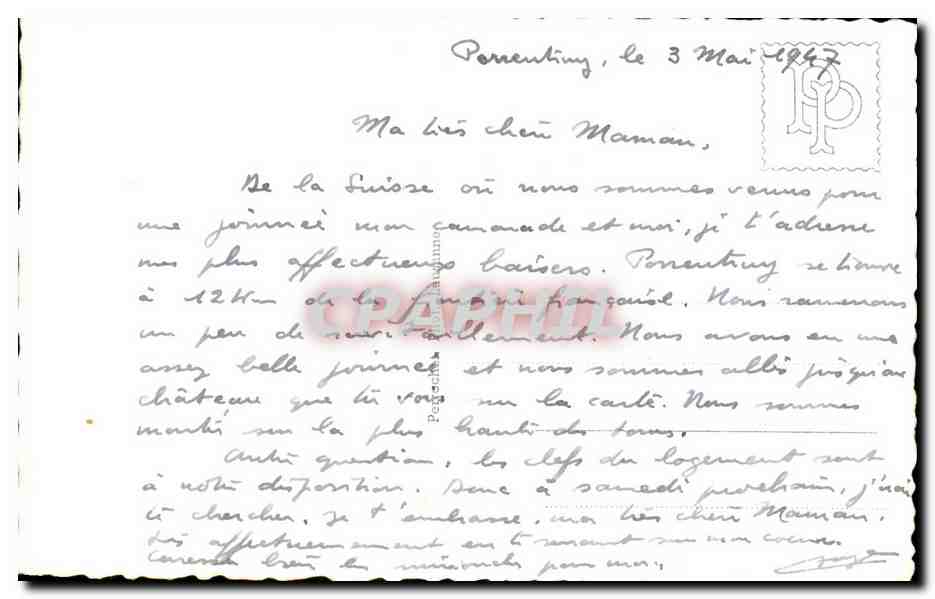 Porrentruy, le 3 Mai 1947
PP
Ma très chère Maman,
De la Suisse où nous sommes venus pour
une journée mon camarade et moi, je t'adresse
mes plus affectueux baisers. Porrentruy se trouve
à 12 km de la frontière française. Nous ramenons
un peu de ravitaillement. Nous avons eu une
assez belle journée et nous sommes allés jusqu'au
château que tu vois sur la carte. Nous sommes
montés sur la plus haute des tours.
Autre question, les clefs du logement sont
à notre disposition. Donc à samedi prochain, j'irai
te chercher. Je t'embrasse, ma très chère Maman,
très affectueusement en te serrant sur mon coeur.
Caresse bien les minouches pour moi.
Perrochet Lausanne
CPAPHIL